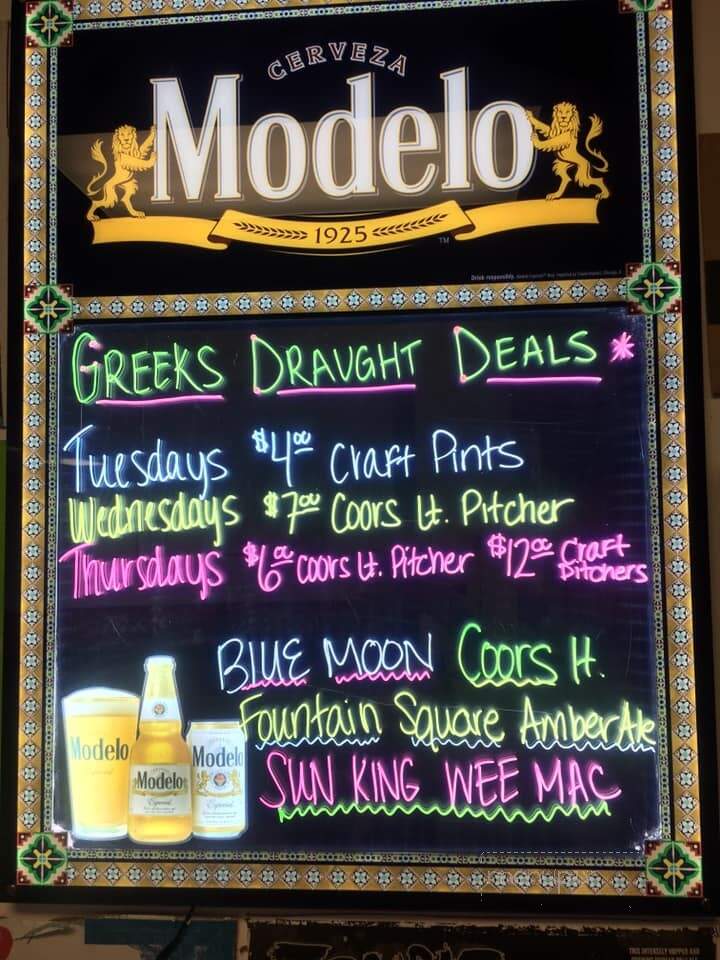 CERVEZA
Modelo
1925
TM
Drink responsibly.
GREEKS DRAUGHT DEALS *
Tuesdays $4.00 Craft Pints
Wednesdays $7.00 Coors Lt. Pitcher
Thursdays $6.00 Coors Lt. Pitcher $12.00 Craft Pitchers
BLUE MOON Coors lt.
Fountain Square Amber Ale
SUN KING WEE MAC
Modelo
Especial
Modelo
Especial
Modelo
Especial